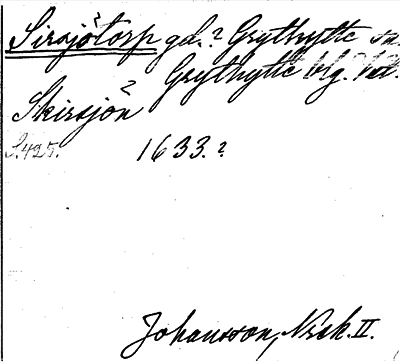 Sirsjötorp gd.? Grythytte sn.
Grythytte blg.
?
Skirsjön
S. 425. 1633.?
Johansson, Nsk. II.